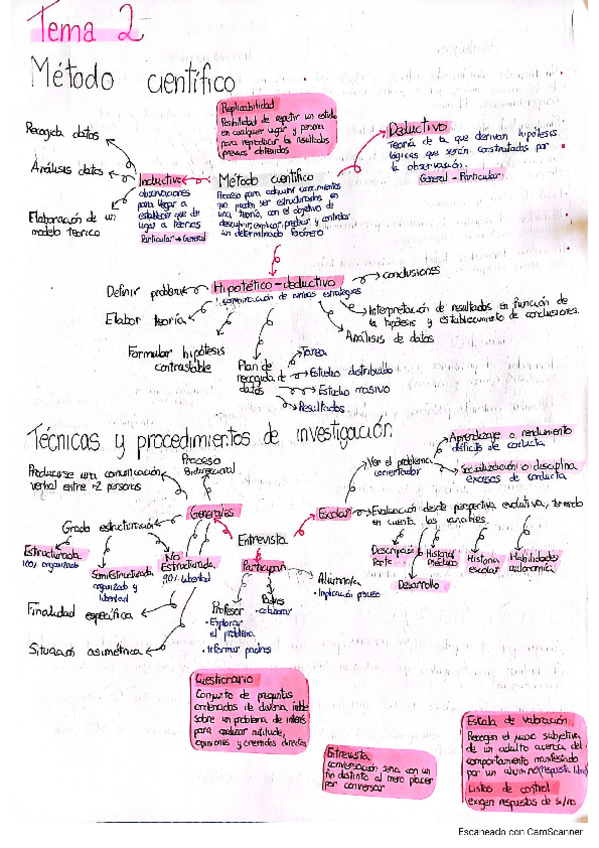 Tema 2
Método científico
Replicabilidad
Posibilidad de repetir un estudio
en cualquier lugar y persona
para reproducir los resultados
previos obtenidos
Deductivo
Teoría de la que derivan hipótesis
lógicas que serán constratadas por
la observación.
General - Particular
Recogida datos
Análisis datos
Elaboración de un
modelo teórico
Inductivo
observaciones
para llegar a
establecer que da
lugar a teorías
Particular → General
Método científico
Proceso para adquirir conocimientos
que puedan ser estructurados en
una teoría, con el objetivo de
descubrir, explicar, predecir y controlar
un determinado
Hipotético-deductivo
combinación de ambas estrategias
conclusiones
Definir problema
Elabor teoría
Formular hipótesis
contrastable
Plan de
recogida de
datos
Tarea
Estudio distribuido
Estudio masivo
Resultados
Interpretación de resultados en función de
la hipótesis y establecimiento de conclusiones.
Análisis de datos
Técnicas y procedimientos de investigación
Producirse una comunicación
verbal entre +2 personas
Proceso
Bidireccional
Generales
Grado estructuración
Estructurada
100% organizado
SemiEstructurada
organizado y
libertad
No
Estructurada
90% libertad
Finalidad específica
Situación asimétrica
Entrevista
Participan
Profesor
• Explorar
el problema
• Informar padres
Padres
Alumno/a
• Implicación
Escolar
Ver el problema
Aprendizaje o rendimiento
déficits de conducta
Socialización o disciplina
excesos de conducta
Evaluación desde perspectiva evolutiva, teniendo
en cuenta las variables.
Historial
médico
Historia
escolar
Habilidades
autonomía
Desarrollo
Cuestionario
Conjunto de preguntas
ordenadas de diversa índole
sobre un problema de interés
para analizar actitudes,
opiniones y creencias directas
Entrevista
conversación seria con un
fin distinto al mero placer
por conversar
Escala de valoración
Recogen el juicio subjetivo
de un adulto acerca del
comportamiento manifestado
por un alumno (respuesta libre)
Listas de control
exigen respuestas de si/no
Escaneado con CamScanner